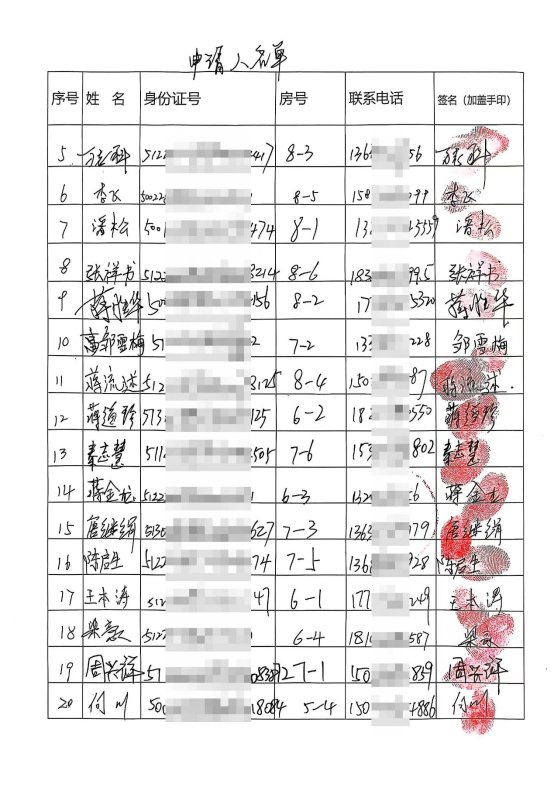 申请人名单
序号 姓 名 身份证号 房号 联系电话 签名（加盖手印）
5 5122 2417 8-3 136 56
6 李飞 50022 8-5 158 099 李飞
7 潘松 5001 474 8-1 13 潘松
8 张祥书 5122 3214 8-6 183 995 张祥书
9 蒋胜华 50 156 8-2 17 5320 蒋胜华
10 邹雪梅 51 2 7-2 133 228 邹雪梅
11 蒋流述 512 3125 8-4 150 87 蒋流述
12 蒋道珍 513 125 6-2 18 550 蒋道珍
13 秦志慧 511 505 7-6 153 802 秦志慧
14 蒋金龙 5122 6-3 132 6 蒋金龙
15 唐继绢 5130 627 7-3 1363 079 唐继绢
16 陈启生 5122 74 7-5 136 928 陈启生
17 王本涛 512 47 6-1 177 249 王本涛
18 梁 5122 6-4 1810 587 梁
19 周兴祥 51 0839 27-1 150 859 周兴祥
20 何川 500 18084 5-4 150 4886 何川